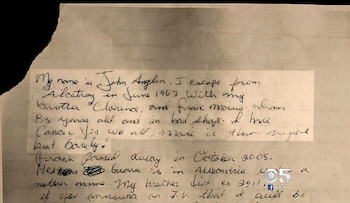 My name is John Anglin. I escape from
Alcatraz in June 1962 with my
brother Clarence, and Frank Morris. I am
83 years old and in bad shape. I have
Cancer. Yes we all made it that night
but barely!
Frank passed away in October 2008.
His grave is in Alexandria under a
nother name. My brother died in 2011.
if you announce on T.V. that I will be
5